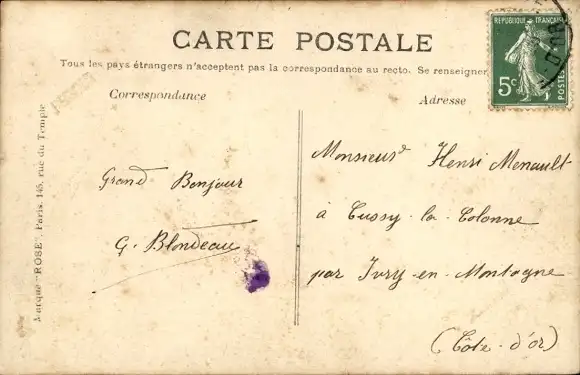 CARTE POSTALE
Tous les pays étrangers n'acceptent pas la correspondance au recto. Se renseigner
Correspondance
Adresse
REPUBLIQUE FRANÇAISE
5c
POSTES
Marque "ROSE", Paris, 145, rue du Temple
Grand Bonjour
G. Blondeau
Monsieur Henri Menault
à Cussy-la-Colonne
par Ivry-en-Montagne
(Côte-d'or)